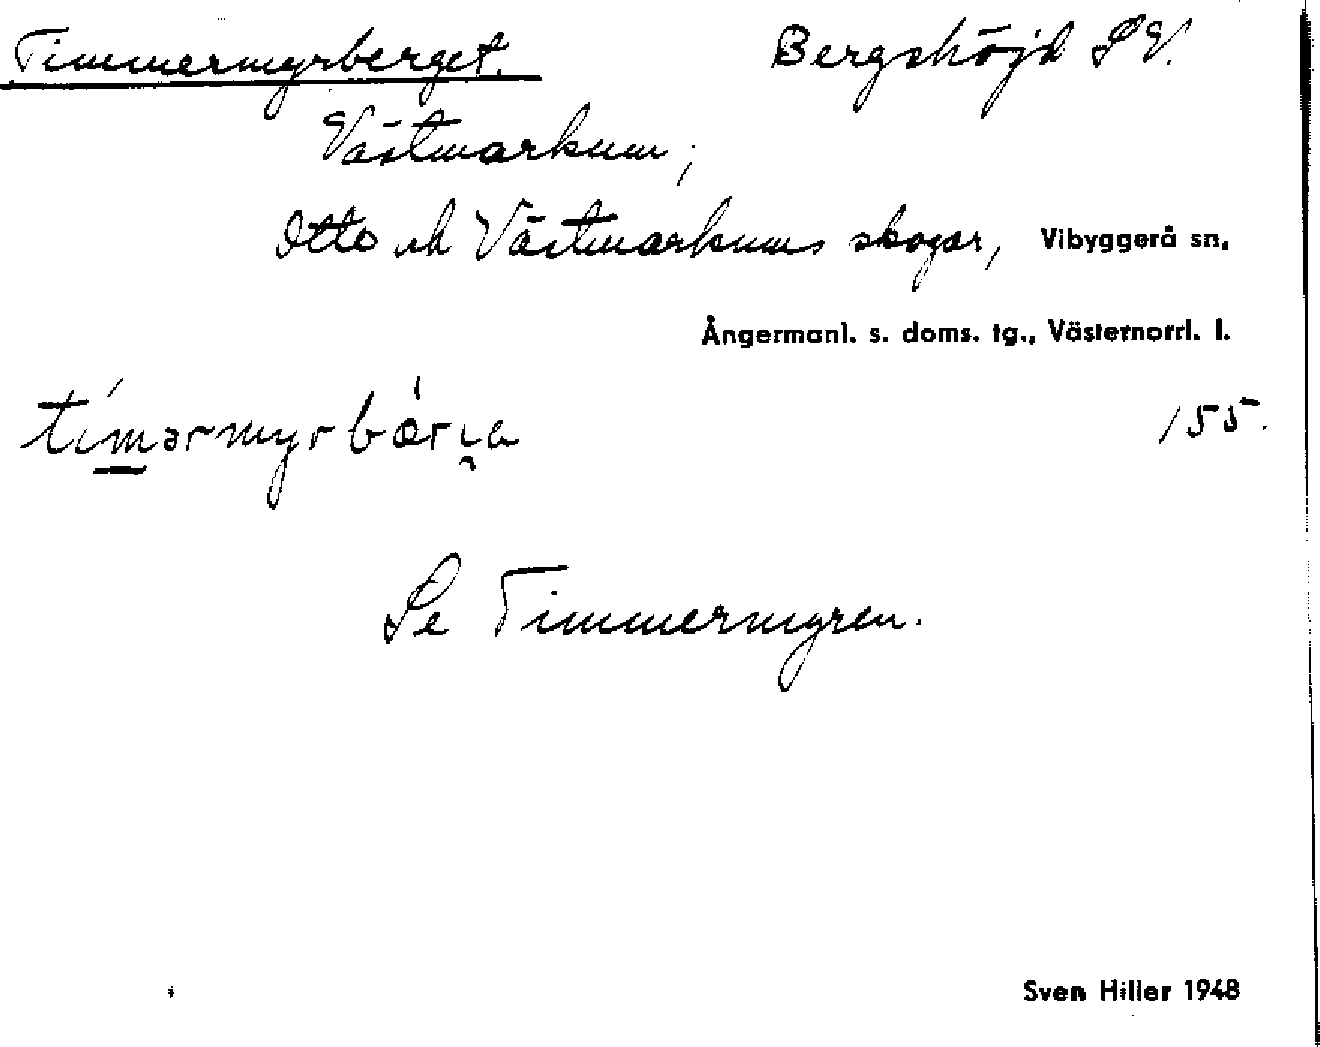 Timmermyrberget. Bergshöjd S V.
Västmarkum,
Otto ch Västmarkums skogar, Vibyggerå sn,
Ångermanl. s. doms. tg., Västernorrl. l.
155.
Se Timmermyren.
Sven Hiller 1948